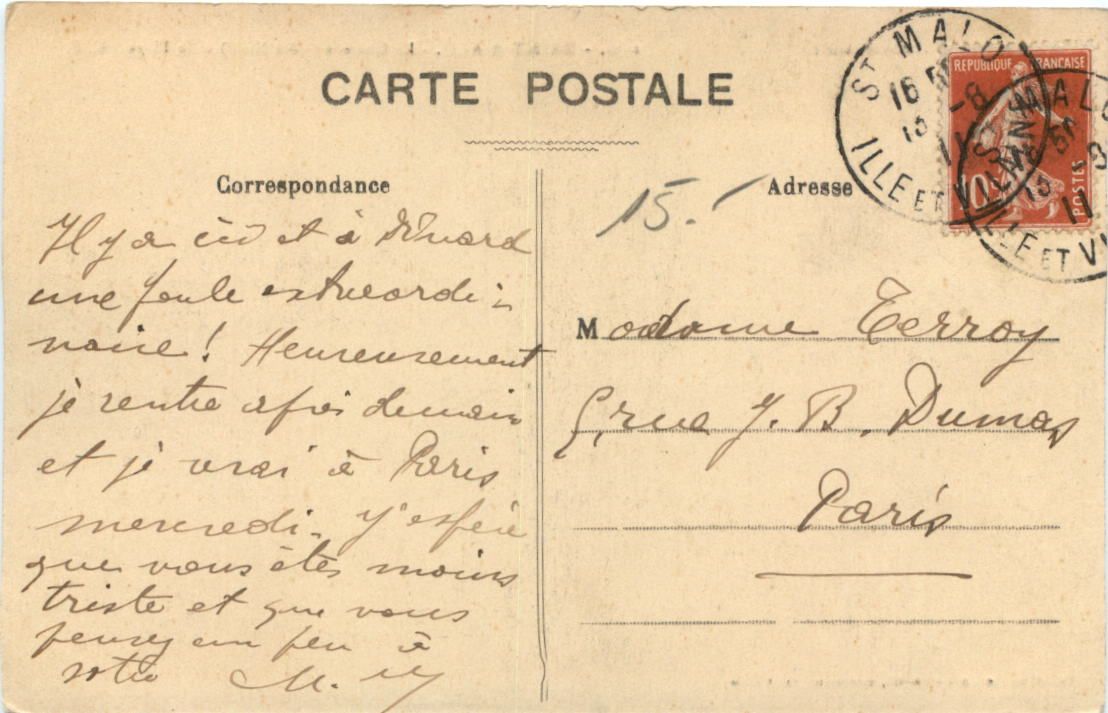 CARTE POSTALE
Correspondance
Il y a ici et à Dinard
une foule extraordi-
naire! Heureusement
je rentre après demain
et je vrai à Paris
mercredi. J'espère
que vous êtes moins
triste et que vous
pensez un peu à
votre M.
15.-
Adresse
Madame Terroy
5, rue J. B. Dumas
Paris
ST MALO
16 50
13 -8
11
ILLE ET VILAINE
REPUBLIQUE FRANÇAISE
10
POSTES
ST MALO
16 50
13 8
11
ILLE ET VI